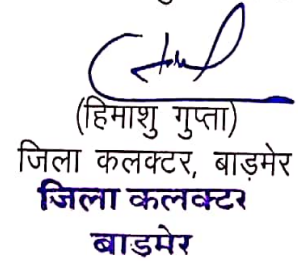 (हिमाशु गुप्ता)
जिला कलक्टर, बाड़मेर
जिला कलक्टर
बाडमेर